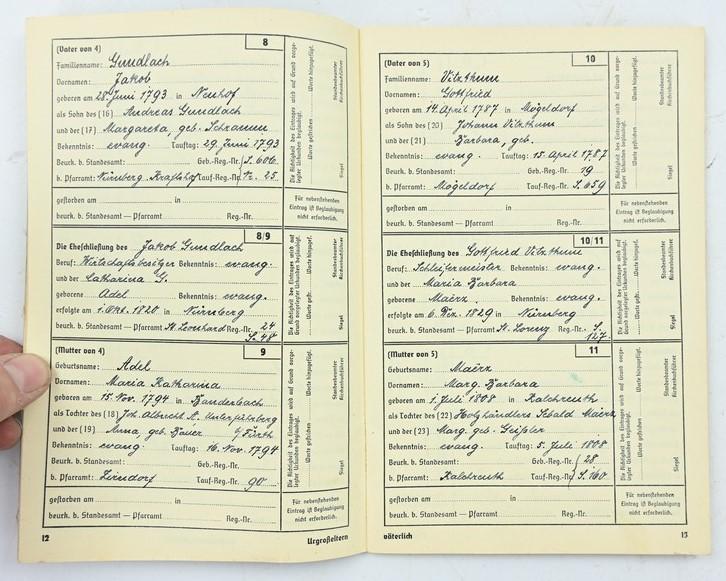 8
(Vater von 4)
Familienname: Gundlach
Vornamen: Jakob
geboren am 28. Juni 1793 in Neuhof
als Sohn des (16) Andreas Gundlach
und der (17) Margareta, geb. Schramm
Bekenntnis: evang. Tauftag: 29. Juni 1793
Beurk. b. Standesamt: Geb.-Reg.-Nr. S. 606.
b. Pfarramt: Nürnberg Kraftshof Tauf-Reg.-Nr. Nr. 25.
gestorben am in
beurk. b. Standesamt – Pfarramt Reg.-Nr.
Die Richtigkeit des Eintrages wird auf Grund vorge-
legter Urkunden beglaubigt.
Worte gestrichen Worte hinzugefügt.
Siegel Standesbeamter
Kirchenbuchführer
Für nebenstehenden
Eintrag ist Beglaubigung
nicht erforderlich.
8/9
Die Eheschließung des Jakob Gundlach
Beruf: Wirtschaftsbesitzer Bekenntnis: evang.
und der Catharina G.
geborene Adel Bekenntnis: evang.
erfolgte am 1. Okt. 1820 in Nürnberg
beurk. b. Standesamt – Pfarramt St. Leonhard Reg.-Nr. 24
S. 48
Die Richtigkeit des Eintrages wird auf
Grund vorgelegter Urkunden beglaubigt.
Worte gestr. Worte hinzugef.
Siegel Standesbeamter
Kirchenbuchführer
9
(Mutter von 4)
Geburtsname: Adel
Vornamen: Maria Katharina
geboren am 15. Nov. 1794 in Banderbach
als Tochter des (18) Joh. Albrecht A. Unterfürberg
und der (19) Anna geb. Bauer b/ Fürth
Bekenntnis: evang. Tauftag: 16. Nov. 1794
Beurk. b. Standesamt: Geb.-Reg.-Nr.
b. Pfarramt: Zirndorf Tauf-Reg.-Nr. 90
gestorben am in
beurk. b. Standesamt – Pfarramt Reg.-Nr.
Die Richtigkeit des Eintrages wird auf Grund vorge-
legter Urkunden beglaubigt.
Worte gestrichen Worte hinzugefügt.
Siegel Standesbeamter
Kirchenbuchführer
Für nebenstehenden
Eintrag ist Beglaubigung
nicht erforderlich.
12 Urgroßeltern
10
(Vater von 5)
Familienname: Vitzthum
Vornamen: Gottfried
geboren am 14. April 1787 in Mögeldorf
als Sohn des (20) Johann Vitzthum
und der (21) Barbara, geb.
Bekenntnis: evang. Tauftag: 15. April 1787
Beurk. b. Standesamt: Geb.-Reg.-Nr. 19
b. Pfarramt: Mögeldorf Tauf-Reg.-Nr. S. 659
gestorben am in
beurk. b. Standesamt – Pfarramt Reg.-Nr.
Die Richtigkeit des Eintrages wird auf Grund vorge-
legter Urkunden beglaubigt.
Worte gestrichen Worte hinzugefügt.
Siegel Standesbeamter
Kirchenbuchführer
Für nebenstehenden
Eintrag ist Beglaubigung
nicht erforderlich.
10/11
Die Eheschließung des Gottfried Vitzthum
Beruf: Schleifermeister Bekenntnis: evang.
und der Maria Barbara
geborene Maërz Bekenntnis: evang.
erfolgte am 6. Dez. 1829 in Nürnberg
beurk. b. Standesamt – Pfarramt St. Lorenz Reg.-Nr. S.
127.
Die Richtigkeit des Eintrages wird auf
Grund vorgelegter Urkunden beglaubigt.
Worte gestr. Worte hinzugef.
Siegel Standesbeamter
Kirchenbuchführer
11
(Mutter von 5)
Geburtsname: Maërz
Vornamen: Marg. Barbara
geboren am 1. Juli 1808 in Kalchreuth
als Tochter des (22) Holzhändlers Sebald Maërz
und der (23) Marg. geb. Geißler
Bekenntnis: evang. Tauftag: 5. Juli 1808
Beurk. b. Standesamt: Geb.-Reg.-Nr. 28
b. Pfarramt: Kalchreuth Tauf-Reg.-Nr. S. 160
gestorben am in
beurk. b. Standesamt – Pfarramt Reg.-Nr.
Die Richtigkeit des Eintrages wird auf Grund vorge-
legter Urkunden beglaubigt.
Worte gestrichen Worte hinzugefügt.
Siegel Standesbeamter
Kirchenbuchführer
Für nebenstehenden
Eintrag ist Beglaubigung
nicht erforderlich.
väterlich 13